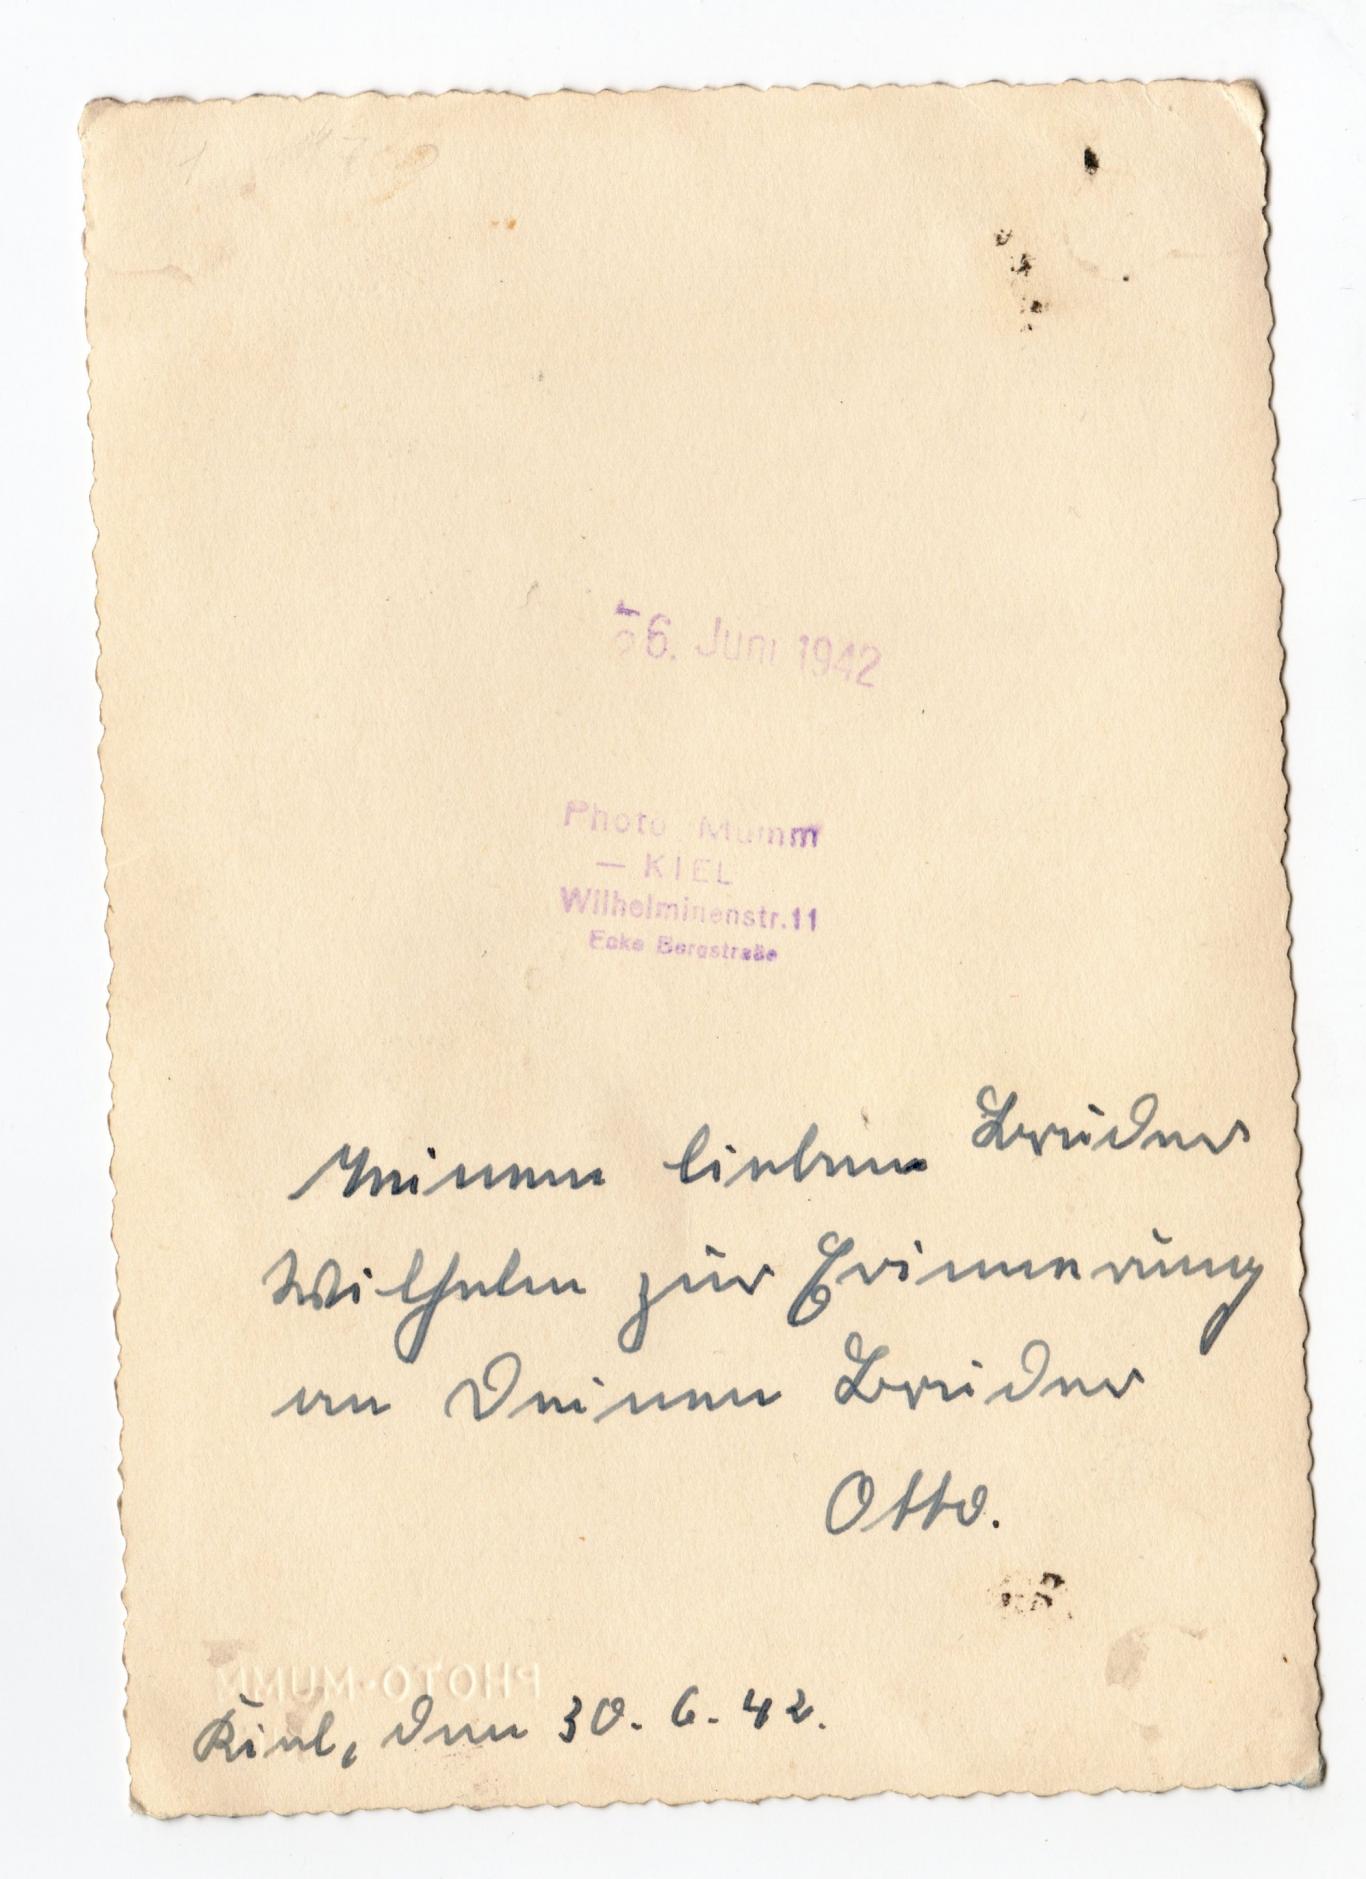 6. Juni 1942
Photo Mumm
— KIEL
Wilhelminenstr. 11
Ecke Bergstraße
Meinem lieben Bruder
Wilhelm zur Erinnerung
an Deinen Bruder
Otto.
PHOTO-MUMM
Kiel, den 30. 6. 42.